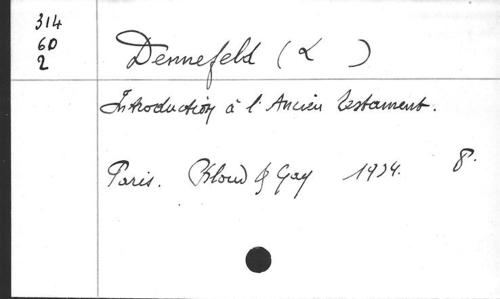 314
60
2
Dennefeld (L )
Introduction à l'Ancien Testament.
Paris. Bloud & Gay 1934. 8°.